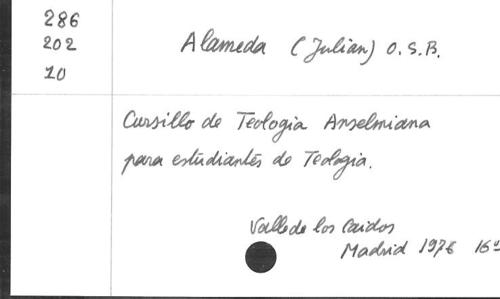 286
202
10
Alameda (Julian) O.S.B.
Cursillo de Teologia Anselmiana
para estudiantes de Teologia.
Valle de los Caidos
Madrid 1976